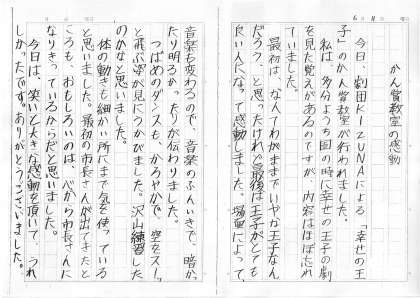 六月 日
かん賞教室の感動
今日、劇団KIZUNAによる「幸せの王
子」のかん賞教室が行われました。
私は、多分よう園の時に幸せの王子の劇
を見た覚えがあるのですが、内容はほぼ忘れ
ていました。
最初は、なんてわがままでいやな王子なん
だろう、と思ったけれど最後は王子がとても
良い人になって感動しました。場面によって、
音楽も変わるので、音楽のふんいきで、暗か
ったり明るかったりが伝わりました。
つばめのダンスも、かろやかで、空をスーッ
と飛ぶ姿が見にうかびました。沢山練習した
のかなと思いました。
体の動きも細かい所にまで気を使っている
と思いました。最初の市長さんが出てきたと
ころも、おもしろいのは、心から市長さんに
なりきっているからだと思いました。
今日は、笑いと大きな感動を頂いて、うれ
しかったです。ありがとうございました。